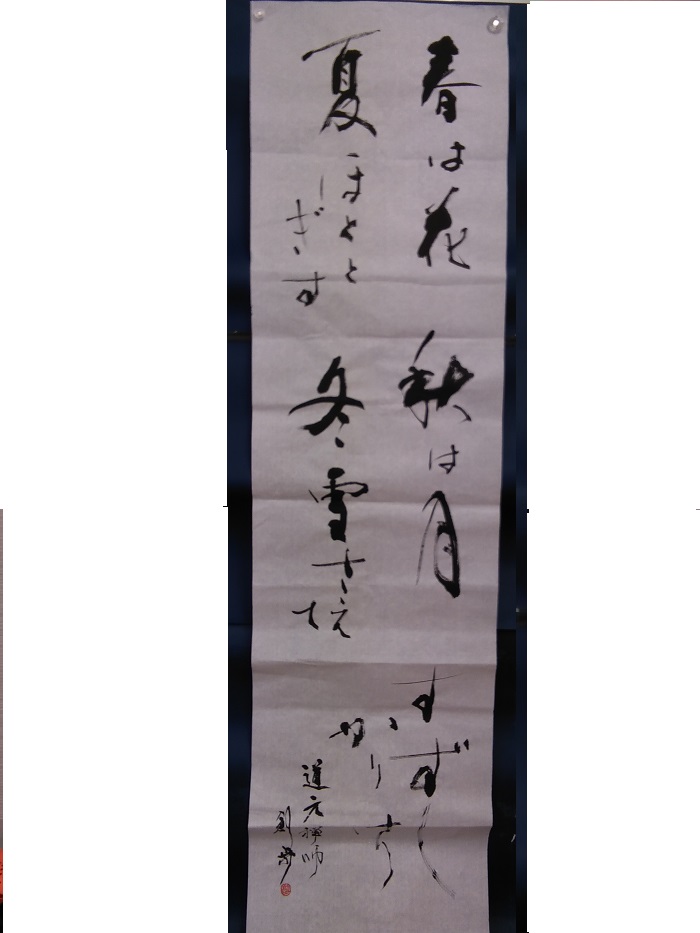 春は花
夏ほとと
ぎす
秋は月
冬雪さえ
て
すずし
かりけり
道元禅師